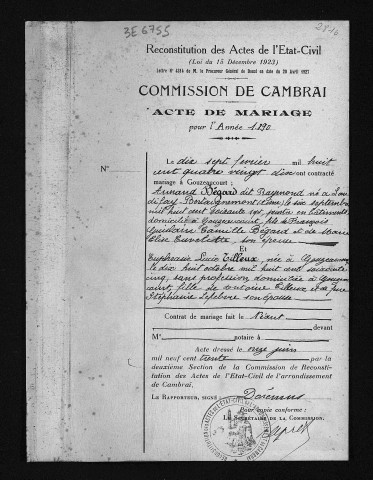 3E 6755
Reconstitution des Actes de l'Etat-Civil
(Loi du 15 Décembre 1923)
Lettre N° 4514 de M. le Procureur Général de Douai en date du 28 Avril 1927
COMMISSION DE CAMBRAI
ACTE DE MARIAGE
pour l'Année 1890
N°
Le dix sept février mil huit
cent quatre vingt dix ont contracté
mariage à Gouzeaucourt :
Armand Dégard dit Raymond né à
le six septembre
mil huit cent soixante six,
domicilié à Gouzeaucourt, fils de François
Ghislain Camille Dégard et de Marie
Elise son épouse
Et
Euphrasie Lucie Tilleux, née à Gouzeaucourt
le dix huit octobre mil huit cent soixante
cinq, sans profession domiciliée à Gouzeau
court, fille de Antoine Tilleux et de
Stéphanie Lefebvre son épouse
Contrat de mariage fait le Néant
devant
M° notaire à
Acte dressé le onze juin
mil neuf cent trente par la
deuxième Section de la Commission de Reconsti-
tution des Actes de l'Etat-Civil de l'arrondissement
de Cambrai.
LE RAPPORTEUR, SIGNÉ :
Pour copie conforme :
LE SECRÉTAIRE DE LA COMMISSION.